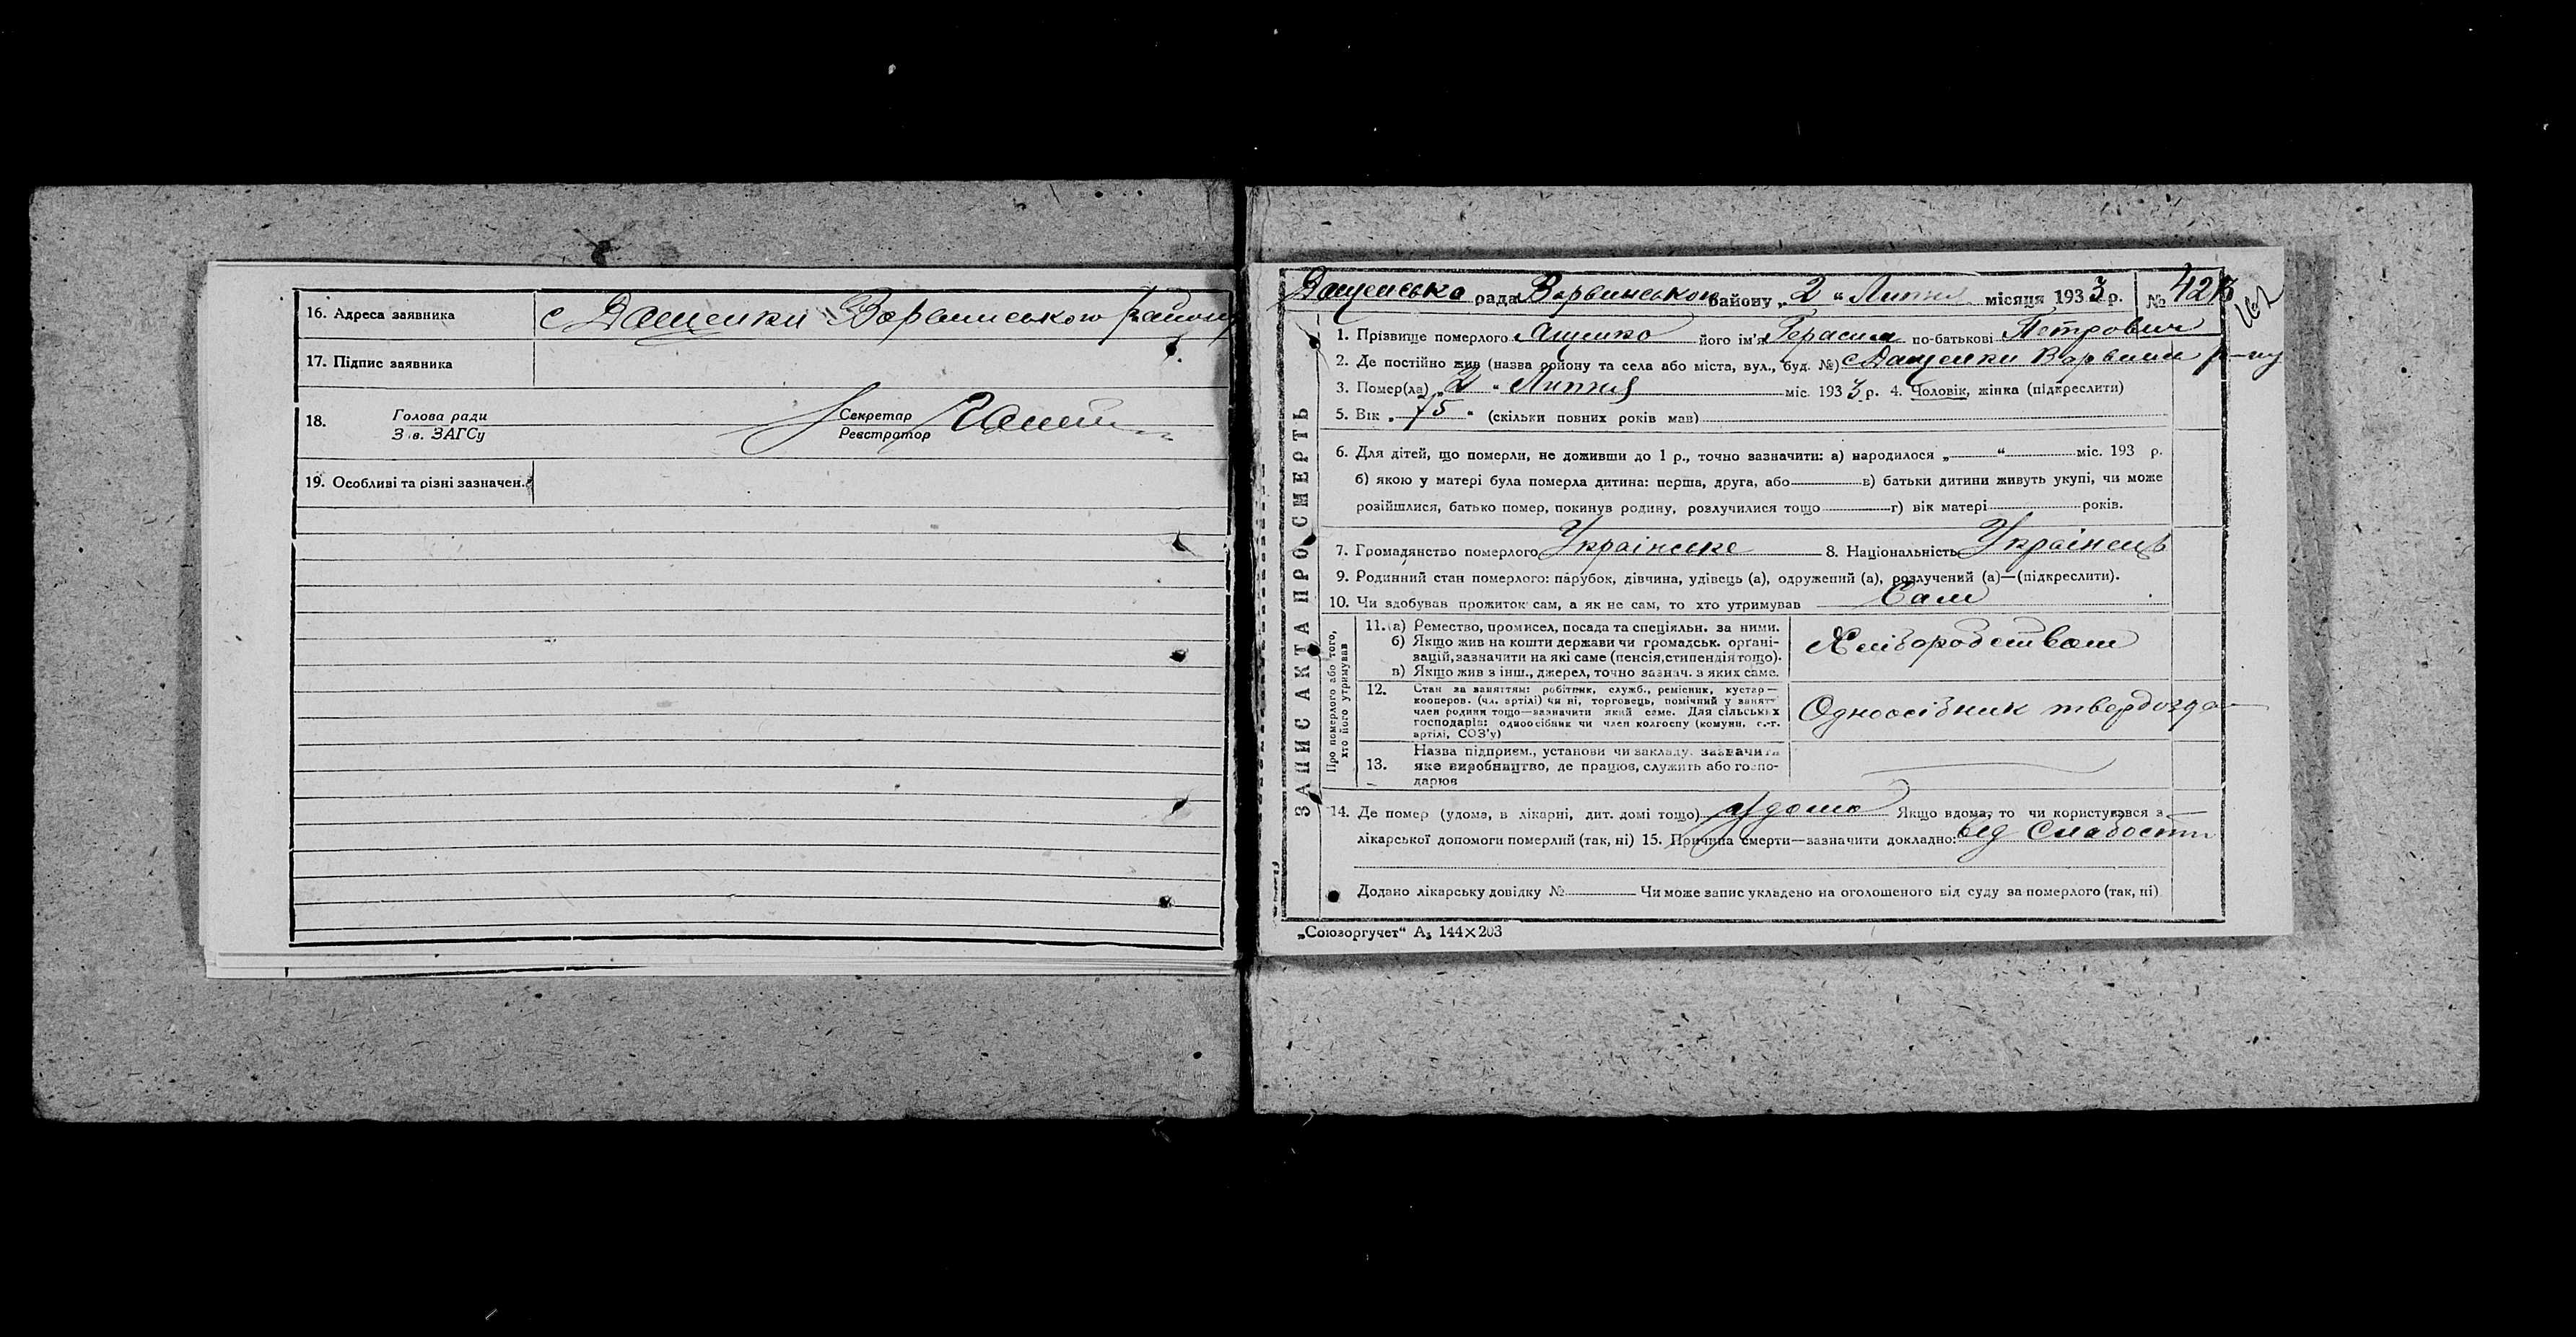 16. Адреса заявника с Дащенки Варвинського району
17. Підпис заявника
18. Голова ради Секретар
Зав. ЗАГСу Реєстратор
19. Особливі та різні зазначен.
Дащенська рада Варвинського району „2“ Лютня місяця 1933 р. № 42
162
ЗАПИС АКТА ПРО СМЕРТЬ
1. Прізвище померлого Ященко його ім'я Герасим по-батькові Петрович
2. Де постійно жив (назва району та села або міста, вул., буд. №) с Дащенки Варвин р-ну
3. Помер(ла) „2“ Лютня міс. 1933 р. 4. Чоловік, жінка (підкреслити)
5. Вік „75“ (скільки повних років мав)
6. Для дітей, що померли, не доживши до 1 р., точно зазначити: а) народилося „ “ міс. 193 р.
б) якою у матері була померла дитина: перша, друга, або в) батьки дитини живуть укупі, чи може
розійшлися, батько помер, покинув родину, розлучилися тощо г) вік матері років.
7. Громадянство померлого Українське 8. Національність Українець
9. Родинний стан померлого: парубок, дівчина, удівець (а), одружений (а), розлучений (а)—(підкреслити).
10. Чи здобував прожиток сам, а як не сам, то хто утримував Сам
Про померлого або того,
хто його утримував
11. а) Ремество, промисел, посада та спеціяльн. за ними.
б) Якщо жив на кошти держави чи громадськ. органі-
зацій, зазначити на які саме (пенсія, стипендія тощо).
в) Якщо жив з інш., джерел, точно зазнач. з яких саме.
Хліборобством
12. Стан за заняттям: робітник, служб., ремісник, кустар—
кооперов. (чл. артілі) чи ні, торговець, помічний у занят.
член родини тощо—зазначити який саме. Для сільських
господарів: одноосібник чи член колгоспу (комуни, с.-г.
артілі, СОЗ'у)
Одноосібник твердозда—
13. Назва підприєм., установи чи закладу, зазначити
яке виробництво, де працює, служить або госпо-
дарює
14. Де помер (удома, в лікарні, дит. домі тощо) Удома Якщо вдома, то чи користувався з
лікарської допомоги померлий (так, ні) 15. Причина смерти—зазначити докладно: від Слабости
Додано лікарську довідку № Чи може запис укладено на оголошеного від суду за померлого (так, ні)
„Союзоргучет“ А₅ 144×203